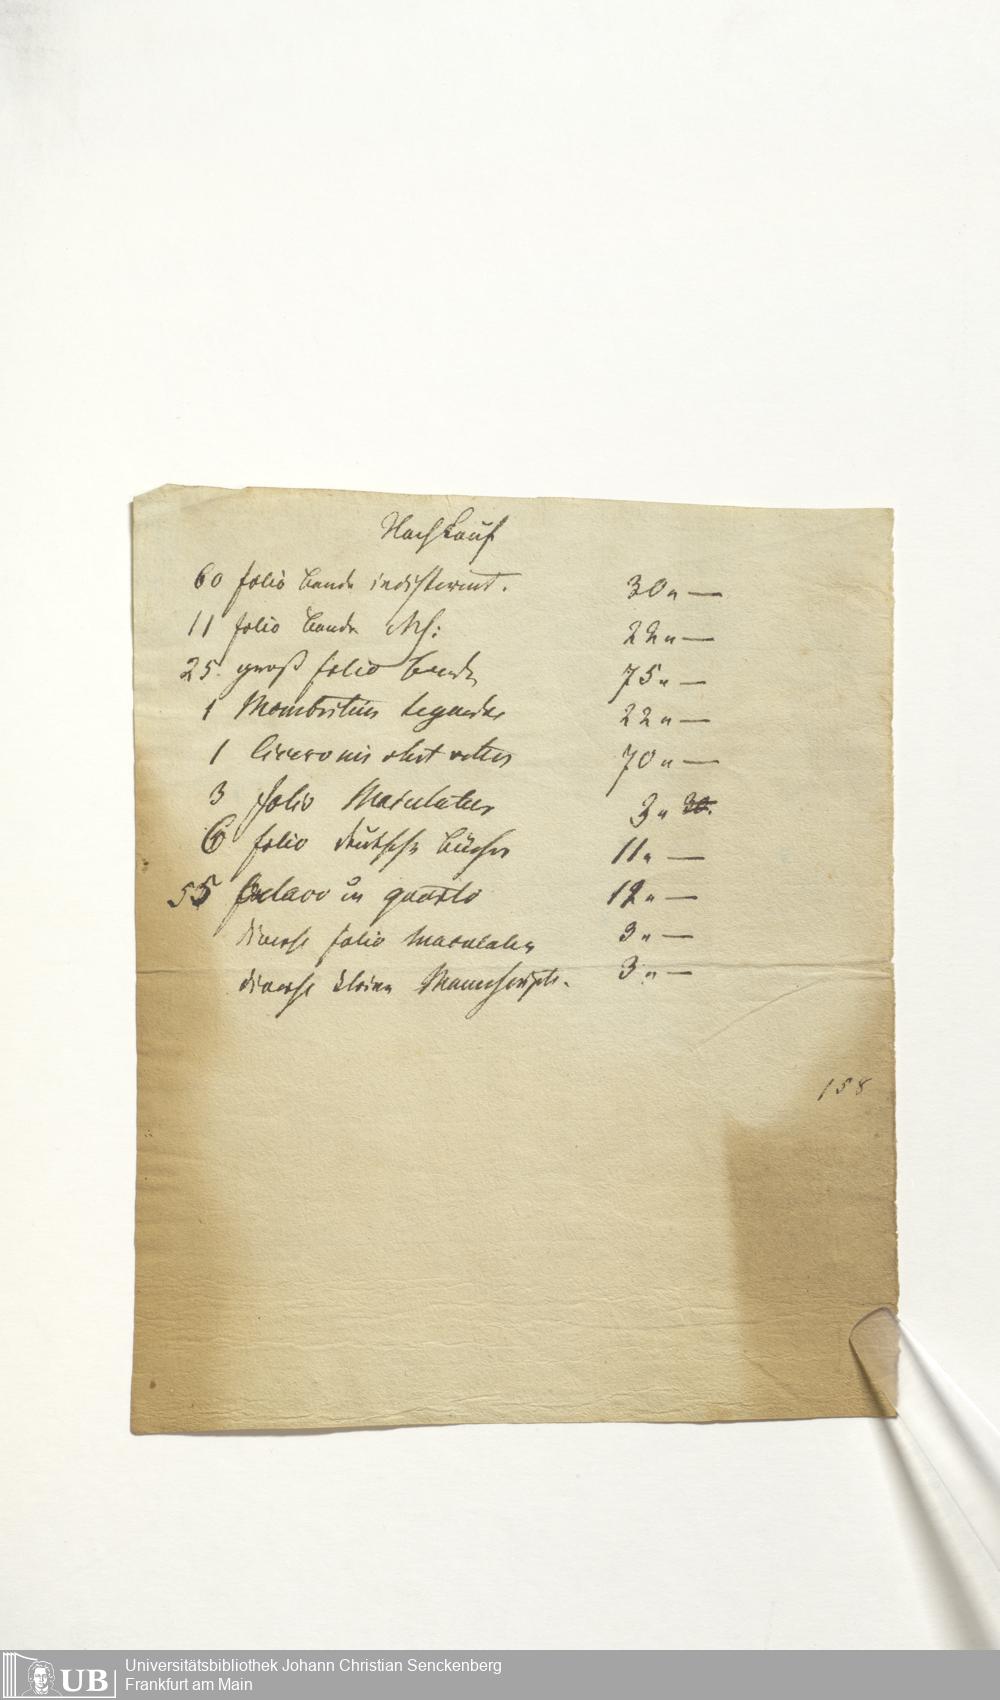 Nachkauf
60 folio bände indifferent. 30 „ —
11 folio bände Ms: 22 „ —
25. groß folio bände 75 „ —
1 Mombritius Legendae 22 „ —
1 Ciceronis rhet vetus 70 „ —
3 folio Maculatur 3 „ 30.
6 folio deutsche bücher 11 „ —
55 octavo in quarto 12 „ —
diverse folio maculatur 3 „ —
diverse kleine Manuscripte. 3 „ —
158
UB Universitätsbibliothek Johann Christian Senckenberg
Frankfurt am Main